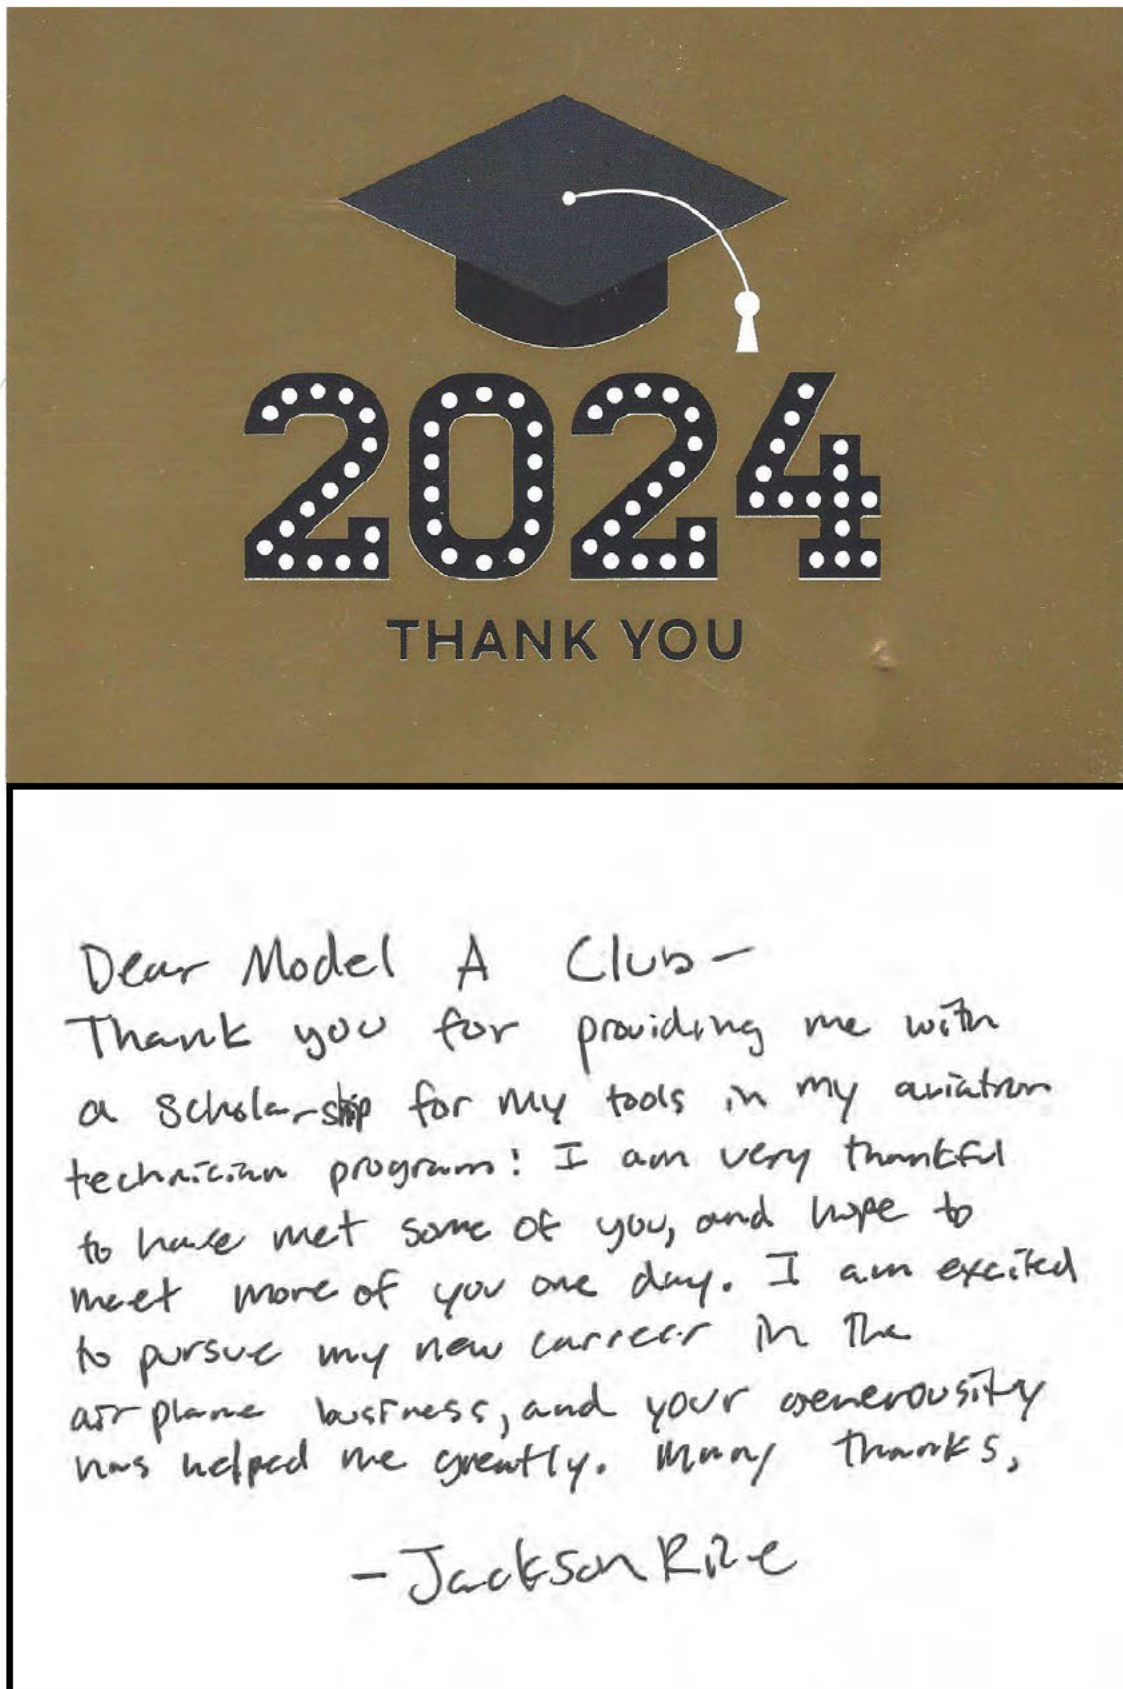 2024
THANK YOU
Dear Model A Club-
Thank you for providing me with
a scholarship for my tools in my aviation
technician program! I am very thankful
to have met some of you, and hope to
meet more of you one day. I am excited
to pursue my new carreer in the
airplane business, and your generousity
has helped me greatly. Many thanks,
- Jackson